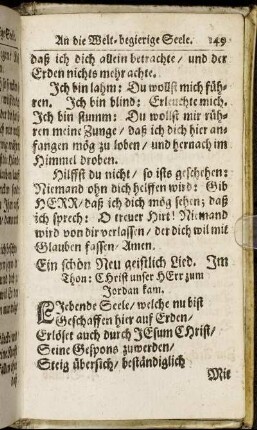 An die Welt-begierige Seele. 149
daß ich dich allein betrachte / und der
Erden nichts mehr achte.
Ich bin lahm: Du wollst mich füh-
ren. Ich bin blind: Erleuchte mich.
Ich bin stumm: Du wollst mir rüh-
ren meine Zunge / daß ich dich hier an-
fangen mög zu loben / und hernach im
Himmel droben.
Hilffst du nicht / so ists geschehen:
Niemand ohn dich helffen wird: Gib
HERR / daß ich dich mög sehen; daß
ich sprech: O treuer Hirt! Niemand
wird von dir verlassen / der dich wil mit
Glauben fassen / Amen.
Ein schön Neu geistlich Lied. Im
Thon: CHrist unser HErr zum
Jordan kam.
LIebende Seele / welche nu bist
Geschaffen hier auf Erden /
Erlöset auch durch JEsum CHrist /
Seine Gespons zu werden /
Steig übersich / beständiglich
Mit